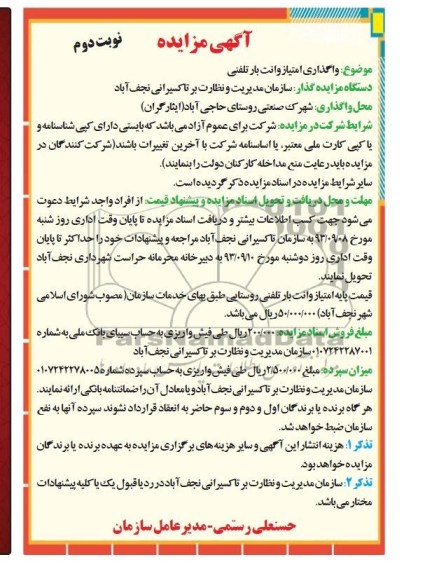 آگهی مزایده
نوبت دوم
موضوع: واگذاری امتیاز وانت بار تلفنی
دستگاه مزایده گذار: سازمان مدیریت و نظارت بر تاکسیرانی نجف آباد
محل واگذاری: شهرک صنعتی روستای حاجی آباد(ایثارگران)
شرایط شرکت در مزایده: شرکت برای عموم آزاد می باشد که بایستی دارای کپی شناسنامه و
یا کپی کارت ملی معتبر، یا اساسنامه شرکت با آخرین تغییرات باشند(شرکت کنندگان در
مزایده باید رعایت منع مداخله کارکنان دولت را بنمایند).
سایر شرایط مزایده در اسناد مزایده ذکر گردیده است.
مهلت و محل دریافت و تحویل اسناد مزایده و پیشنهاد قیمت: از افراد واجد شرایط دعوت
می شود جهت کسب اطلاعات بیشتر و دریافت اسناد مزایده تا پایان وقت اداری روز شنبه
مورخ ۹۳/۰۹/۰۸ به سازمان تاکسیرانی نجف آباد مراجعه و پیشنهادات خود را حداکثر تا پایان
وقت اداری روز دوشنبه مورخ ۹۳/۰۹/۱۰ به دبیرخانه محرمانه حراست شهرداری نجف آباد
تحویل نمایند.
قیمت پایه امتیاز وانت بار تلفنی روستایی طبق بهای خدمات سازمان( مصوب شورای اسلامی
شهر نجف آباد) ۵۰/۰۰۰/۰۰۰ ریال می باشد.
مبلغ فروش اسناد مزایده: ۲۰۰/۰۰۰ ریال طی فیش واریزی به حساب سیبای بانک ملی به شماره
۰۱۰۷۲۴۲۲۸۷۰۰۱ سازمان مدیریت و نظارت بر تاکسیرانی نجف آباد
میزان سپرده: مبلغ ۲/۵۰۰/۰۰۰ ریال طی فیش واریزی به حساب سپرده شماره ۰۱۰۷۲۴۲۲۷۸۰۰۵
سازمان مدیریت و نظارت بر تاکسیرانی نجف آباد و یا معادل آن را ضمانتنامه بانکی ارائه نمایند.
هر گاه برنده یا برندگان اول و دوم و سوم حاضر به انعقاد قرارداد نشوند سپرده آنها به نفع
سازمان ضبط خواهد شد.
تذکر ۱: هزینه انتشار این آگهی و سایر هزینه های برگزاری مزایده به عهده برنده یا برندگان
مزایده خواهد بود.
تذکر ۲: سازمان مدیریت و نظارت بر تاکسیرانی نجف آباد در رد یا قبول یک یا کلیه پیشنهادات
مختار می باشد.
حسنعلی رستمی-مدیرعامل سازمان
ParsNamadData